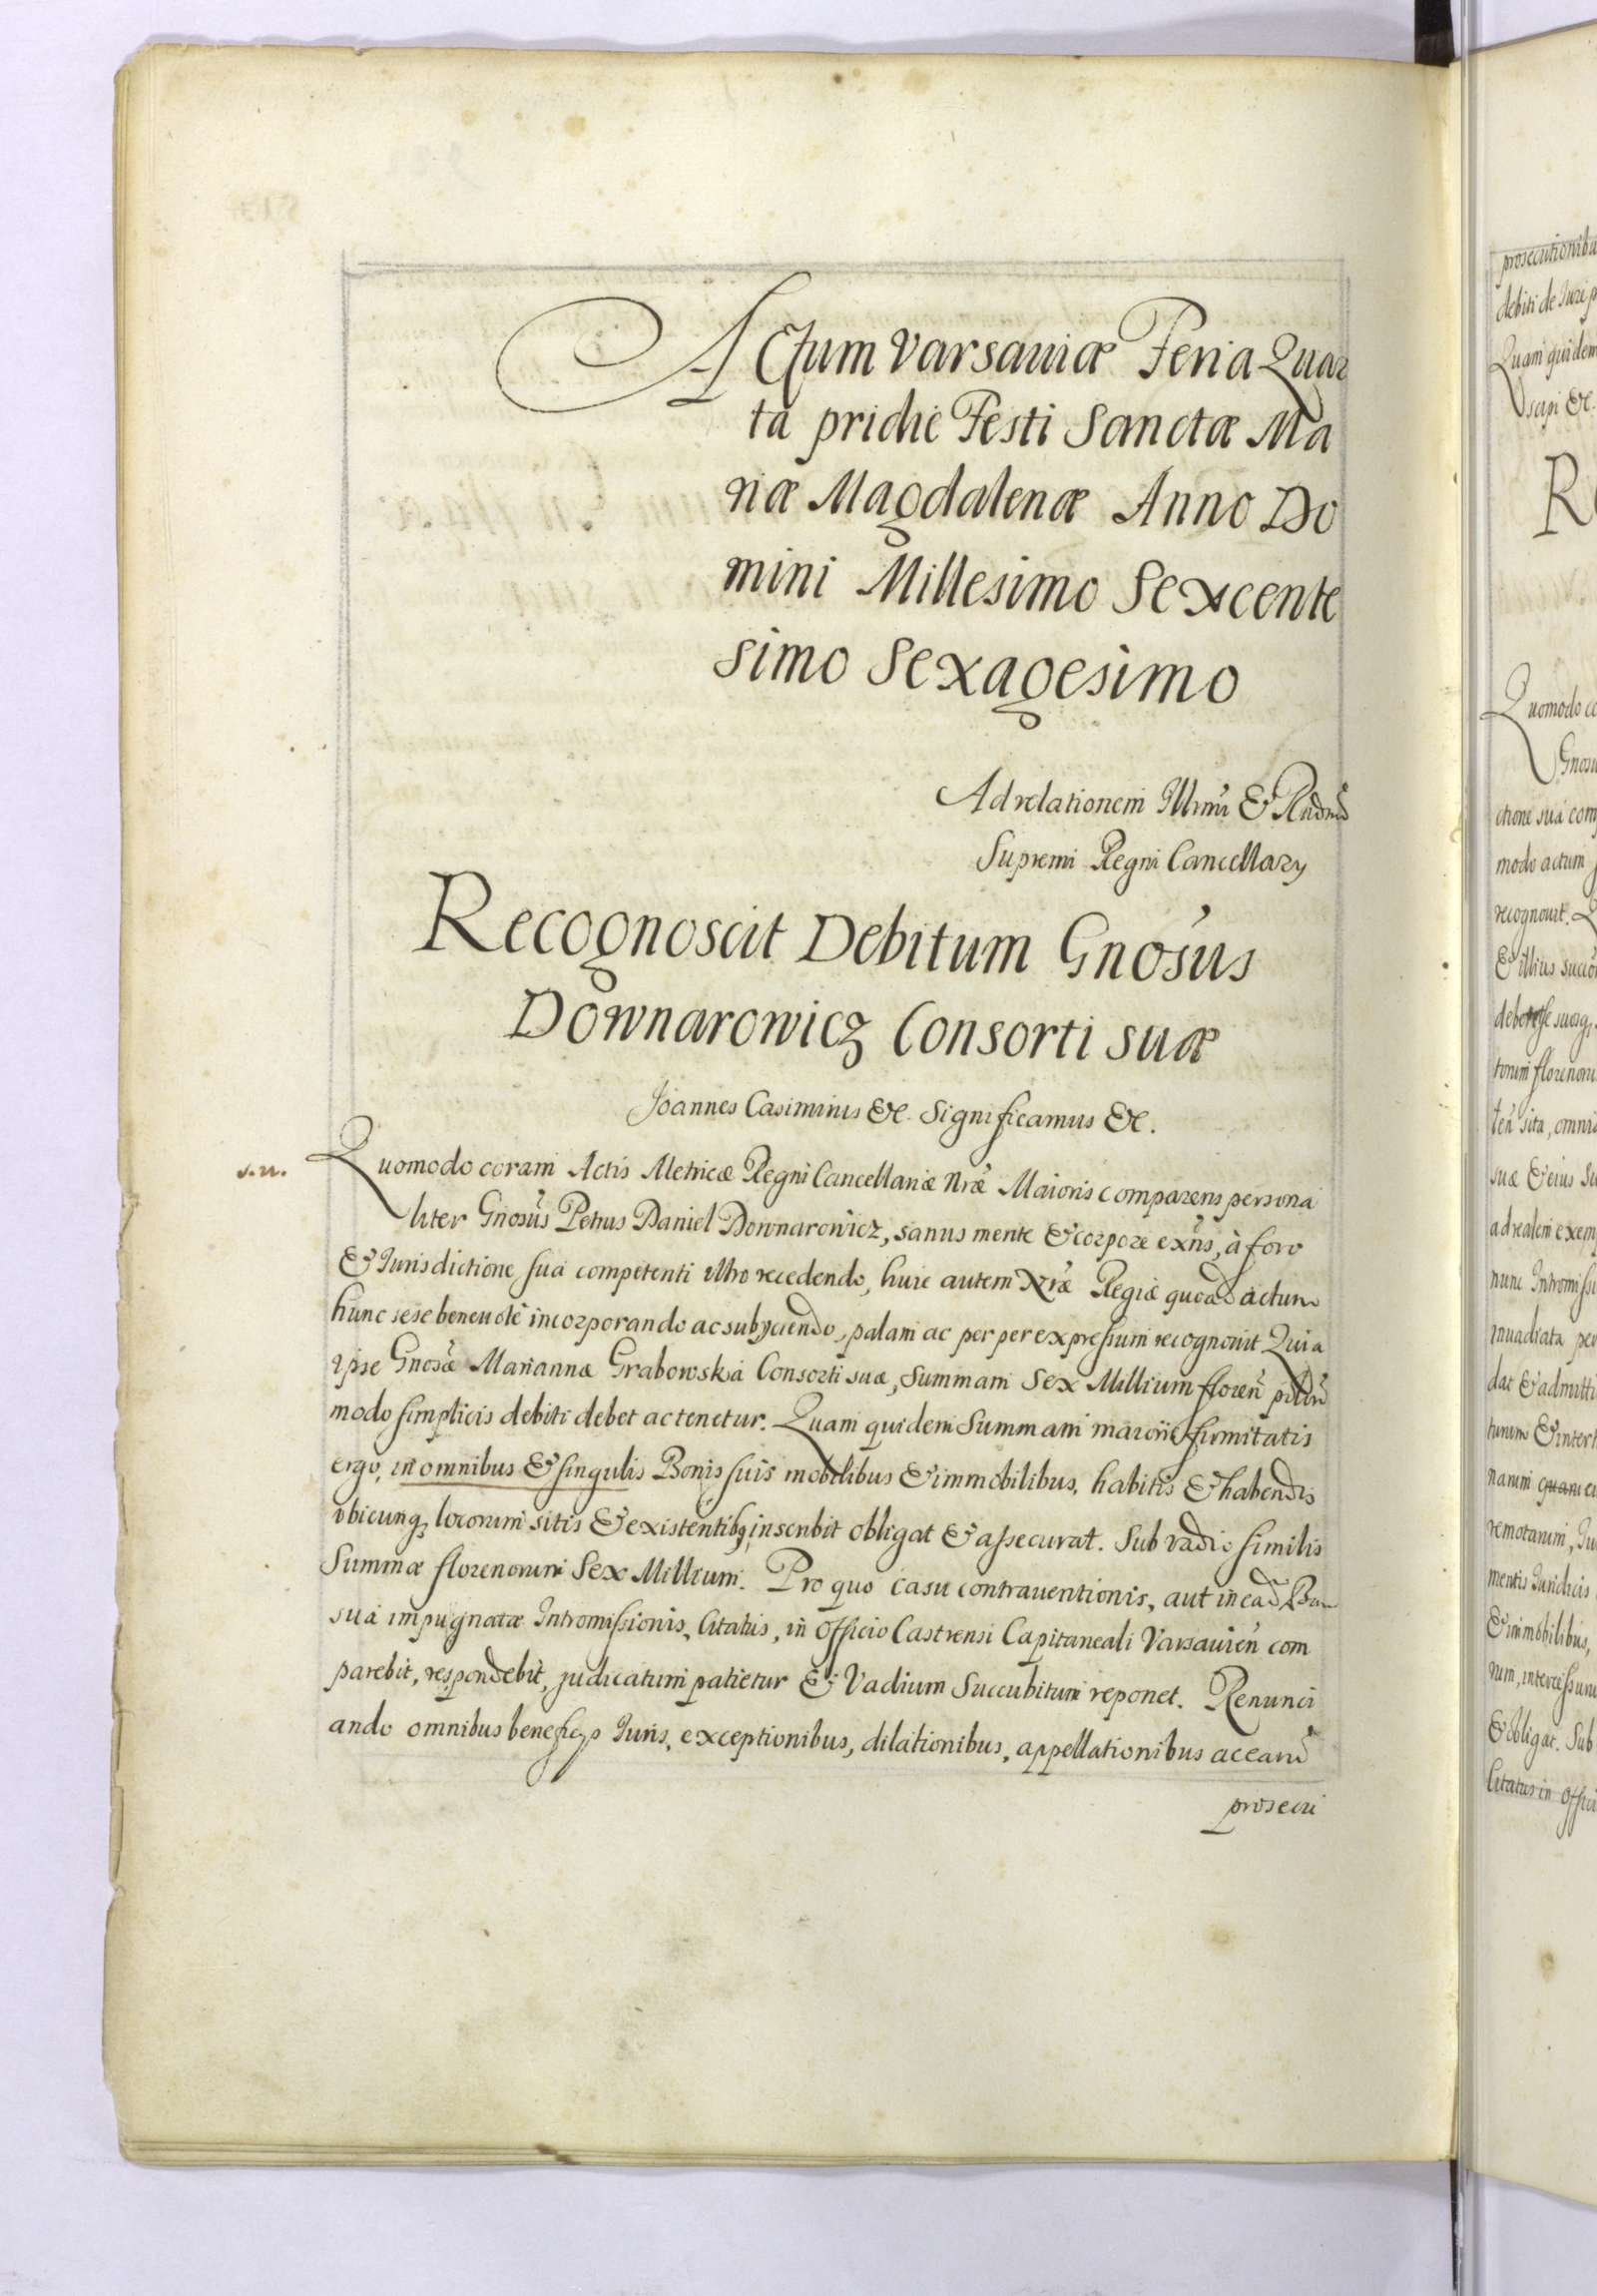 Actum Varsaviæ Feria Quar
ta pridie Festi Sanctæ Ma
riæ Magdalenæ Anno Do
mini Millesimo Sexcente
simo Sexagesimo
Ad relationem Illrmi & Rndmi
Supremi Regni Cancellarij
Recognoscit Debitum Gnosus
Downarowicz Consorti suæ
Joannes Casimirus &c. Significamus &c.
s.n.
Quomodo coram Actis Metricæ Regni Cancellariæ Nræ Maioris comparens persona
liter Gnosus Petrus Daniel Downarowicz, sanus mente & corpore exns, à foro
& Jurisdictione sua competenti ultro recedendo, huic autem Nræ Regiæ quoad actum
hunc sese benevole incorporando ac subijciendo, palam ac per per expressum recognovit Quia
ipse Gnosæ Mariannæ Grabowska Consorti suæ, Summam Sex Millium floren polon
modo simplicis debiti debet ac tenetur. Quam quidem Summam maioris firmitatis
ergo, in omnibus & singulis Bonis suis mobilibus & immobilibus, habitis & habendis
ubicunq locorum sitis & existentibq inscribit obligat & assecurat. Sub vadio similis
Summæ florenorum Sex Millium. Pro quo casu contraventionis, aut in ead Bon
sua impugnatæ Intromissionis, Citatus, in Officio Castrensi Capitaneali Varsavien com
parebit, respondebit, judicatum patietur & Vadium Succubitum reponet. Renunci
ando omnibus beneficijs Juris, exceptionibus, dilationibus, appellationibus ac earu
prosecu
prosecutionibu
debiti de Jure p
Quam quidem
scipi &c.
R
Quomodo co
Gnosu
ctione sua com
modo actum
recognovit.
& illius succo
torum florenoru
ten sita, omni
suæ & eius Su
ad realem exem
nunc Intromissi
invadiata per
dat & admitti
narum quam cu
remotarum, Ju
mentis Juridicis
& immobilibus,
rum, interessum
& obligat. Sub
Citatus in Offici